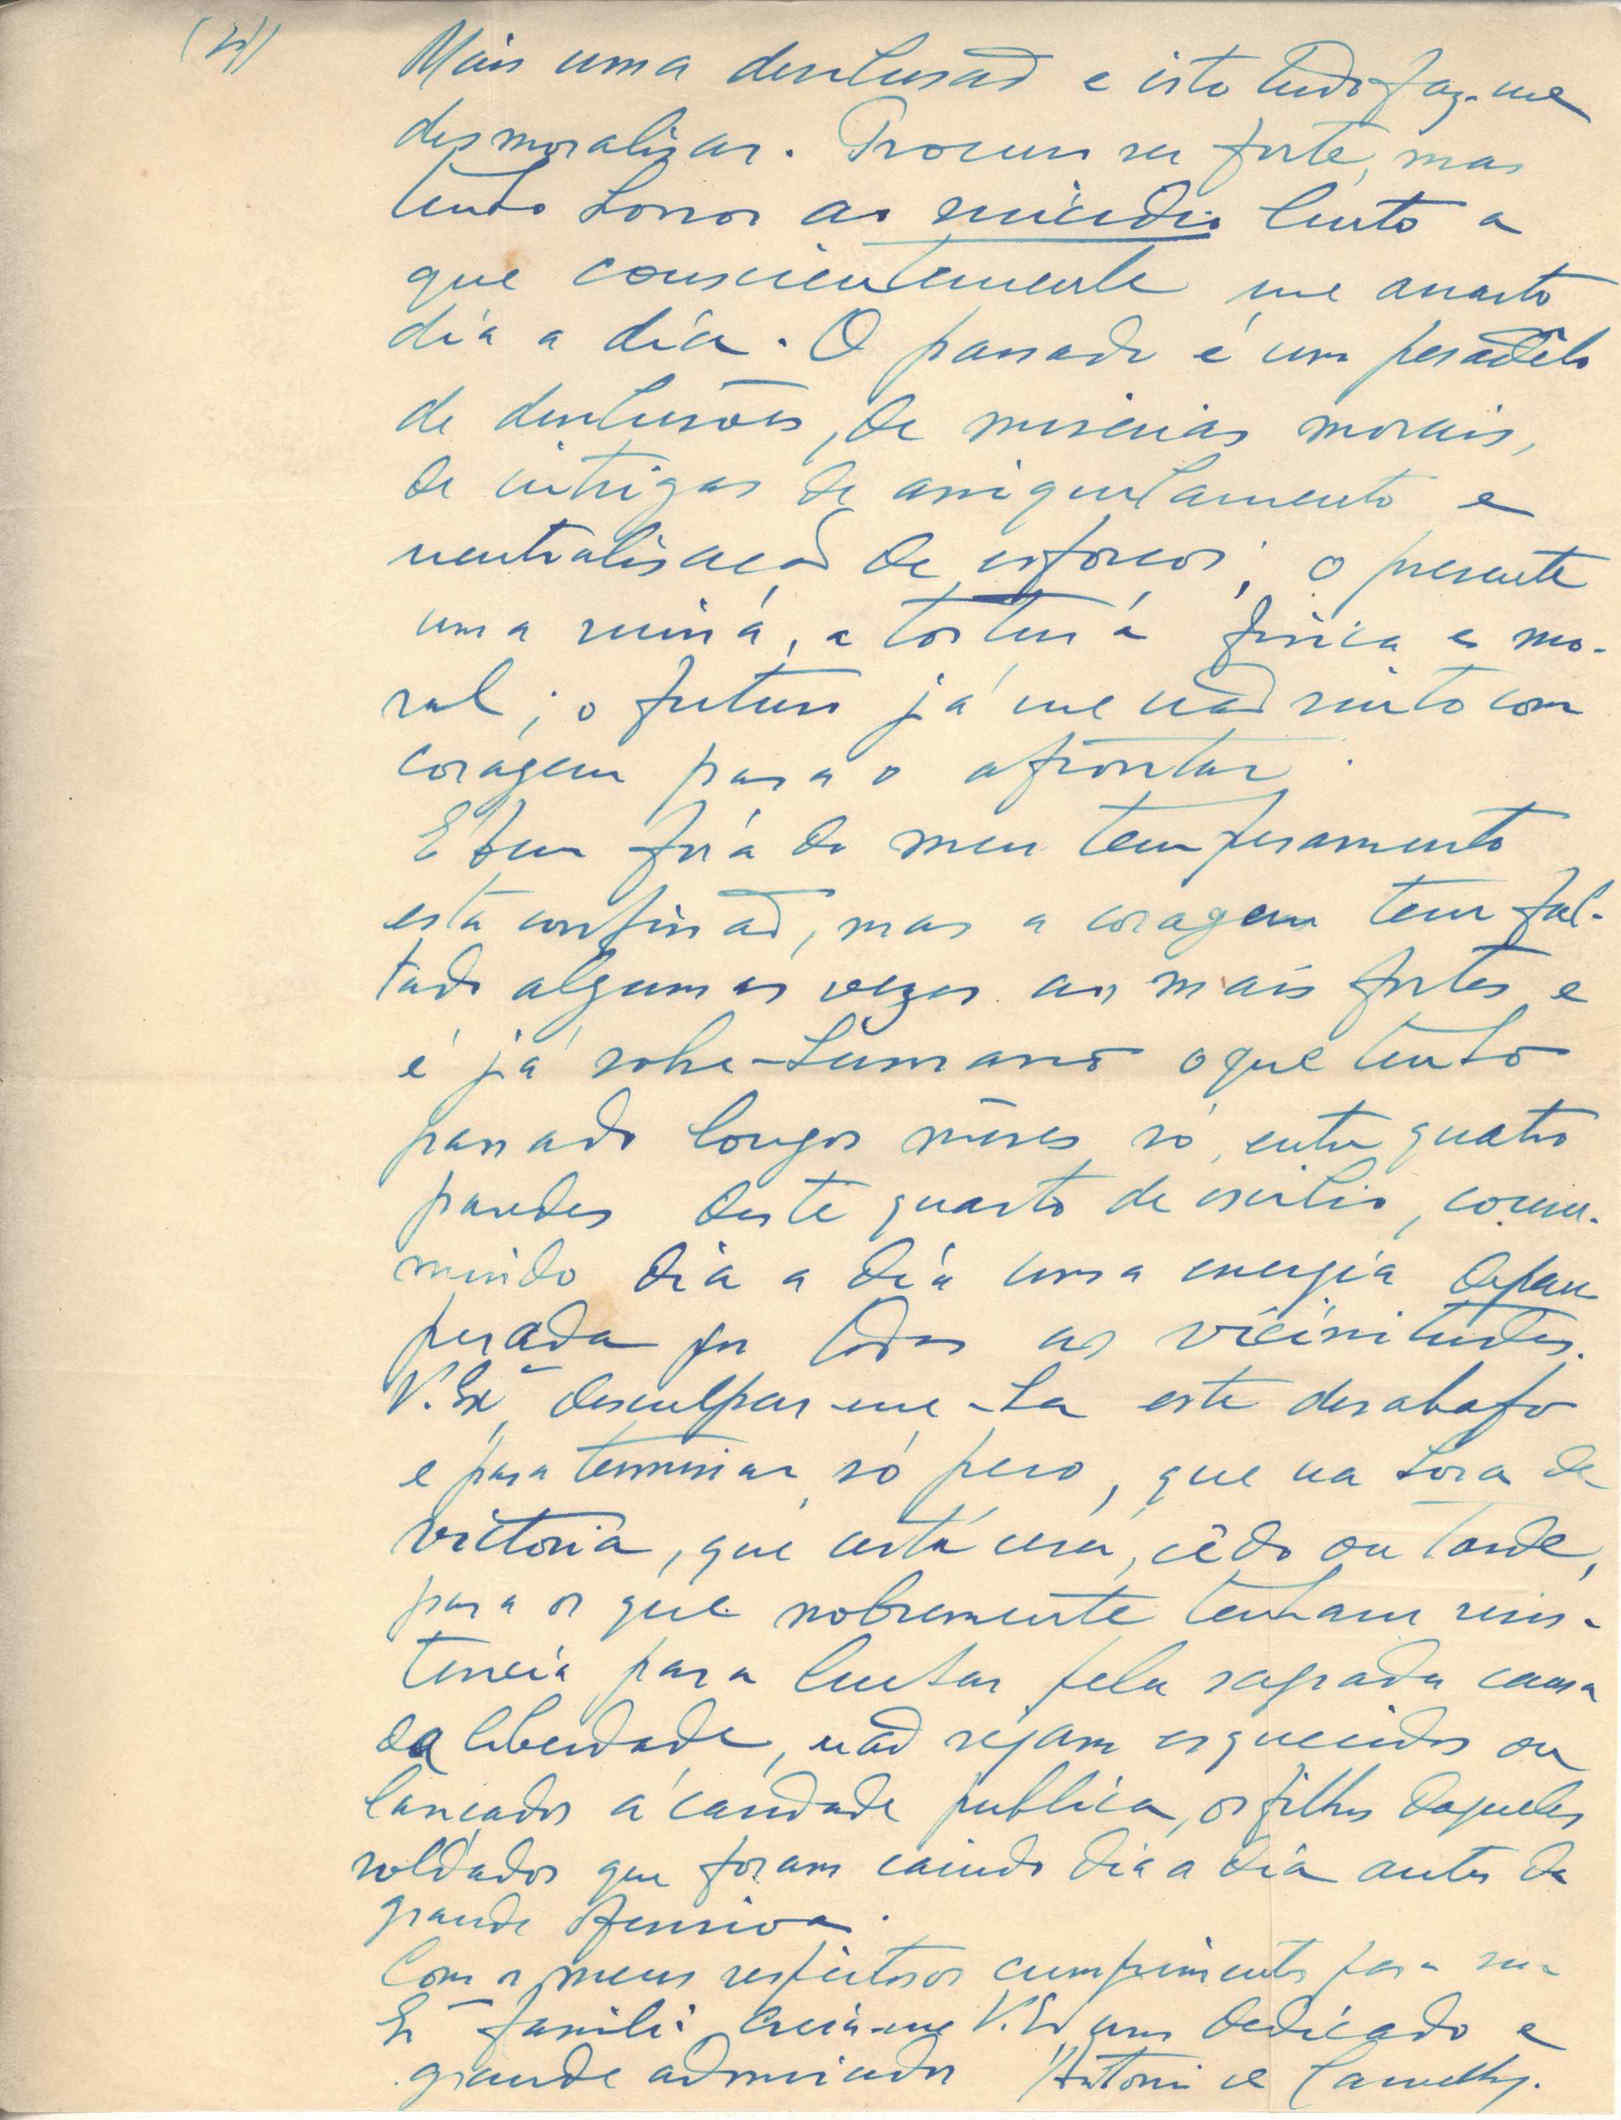 (2)
Mais uma desilusão e isto tudo faz-me
desmoralisar. Procuro ser forte, mas
tenho horror ao suicidio lento a
que conscientemente me arrasto
dia a dia. O passado é um pesadêlo
de desilusões, de miserias morais,
de intrigas de aniquilamento e
neutralisação de esforços; o presente
uma ruina, a tortura fisica e mo-
ral; o futuro já me não sinto com
coragem para o afrontar.
É bem fóra do meu temperamento
esta confissão, mas a coragem tem fal-
tado algumas vezes aos mais fortes e
é já sobre-humano o que tenho
passado longos mêses só, entre quatro
paredes deste quarto de exilio, consu-
mindo dia a dia uma energia depau
perada por todas as vicissitudes.
V. Exª desculpar-me-ha este desabafo
e para terminar só peço, que na hora da
victoria, que certa será, cêdo ou tarde,
para os que nobremente tenham resis-
tencia para luctar pela sagrada causa
da liberdade, não sejam esquecidos ou
lançados á caridade publica, os filhos daqueles
soldados que foram caindo dia a dia antes da
grande ofensiva.
Com os meus respeitosos cumprimentos para sua
Exª familia creia-me V. Ex um dedicado e
grande admirador Antonio de